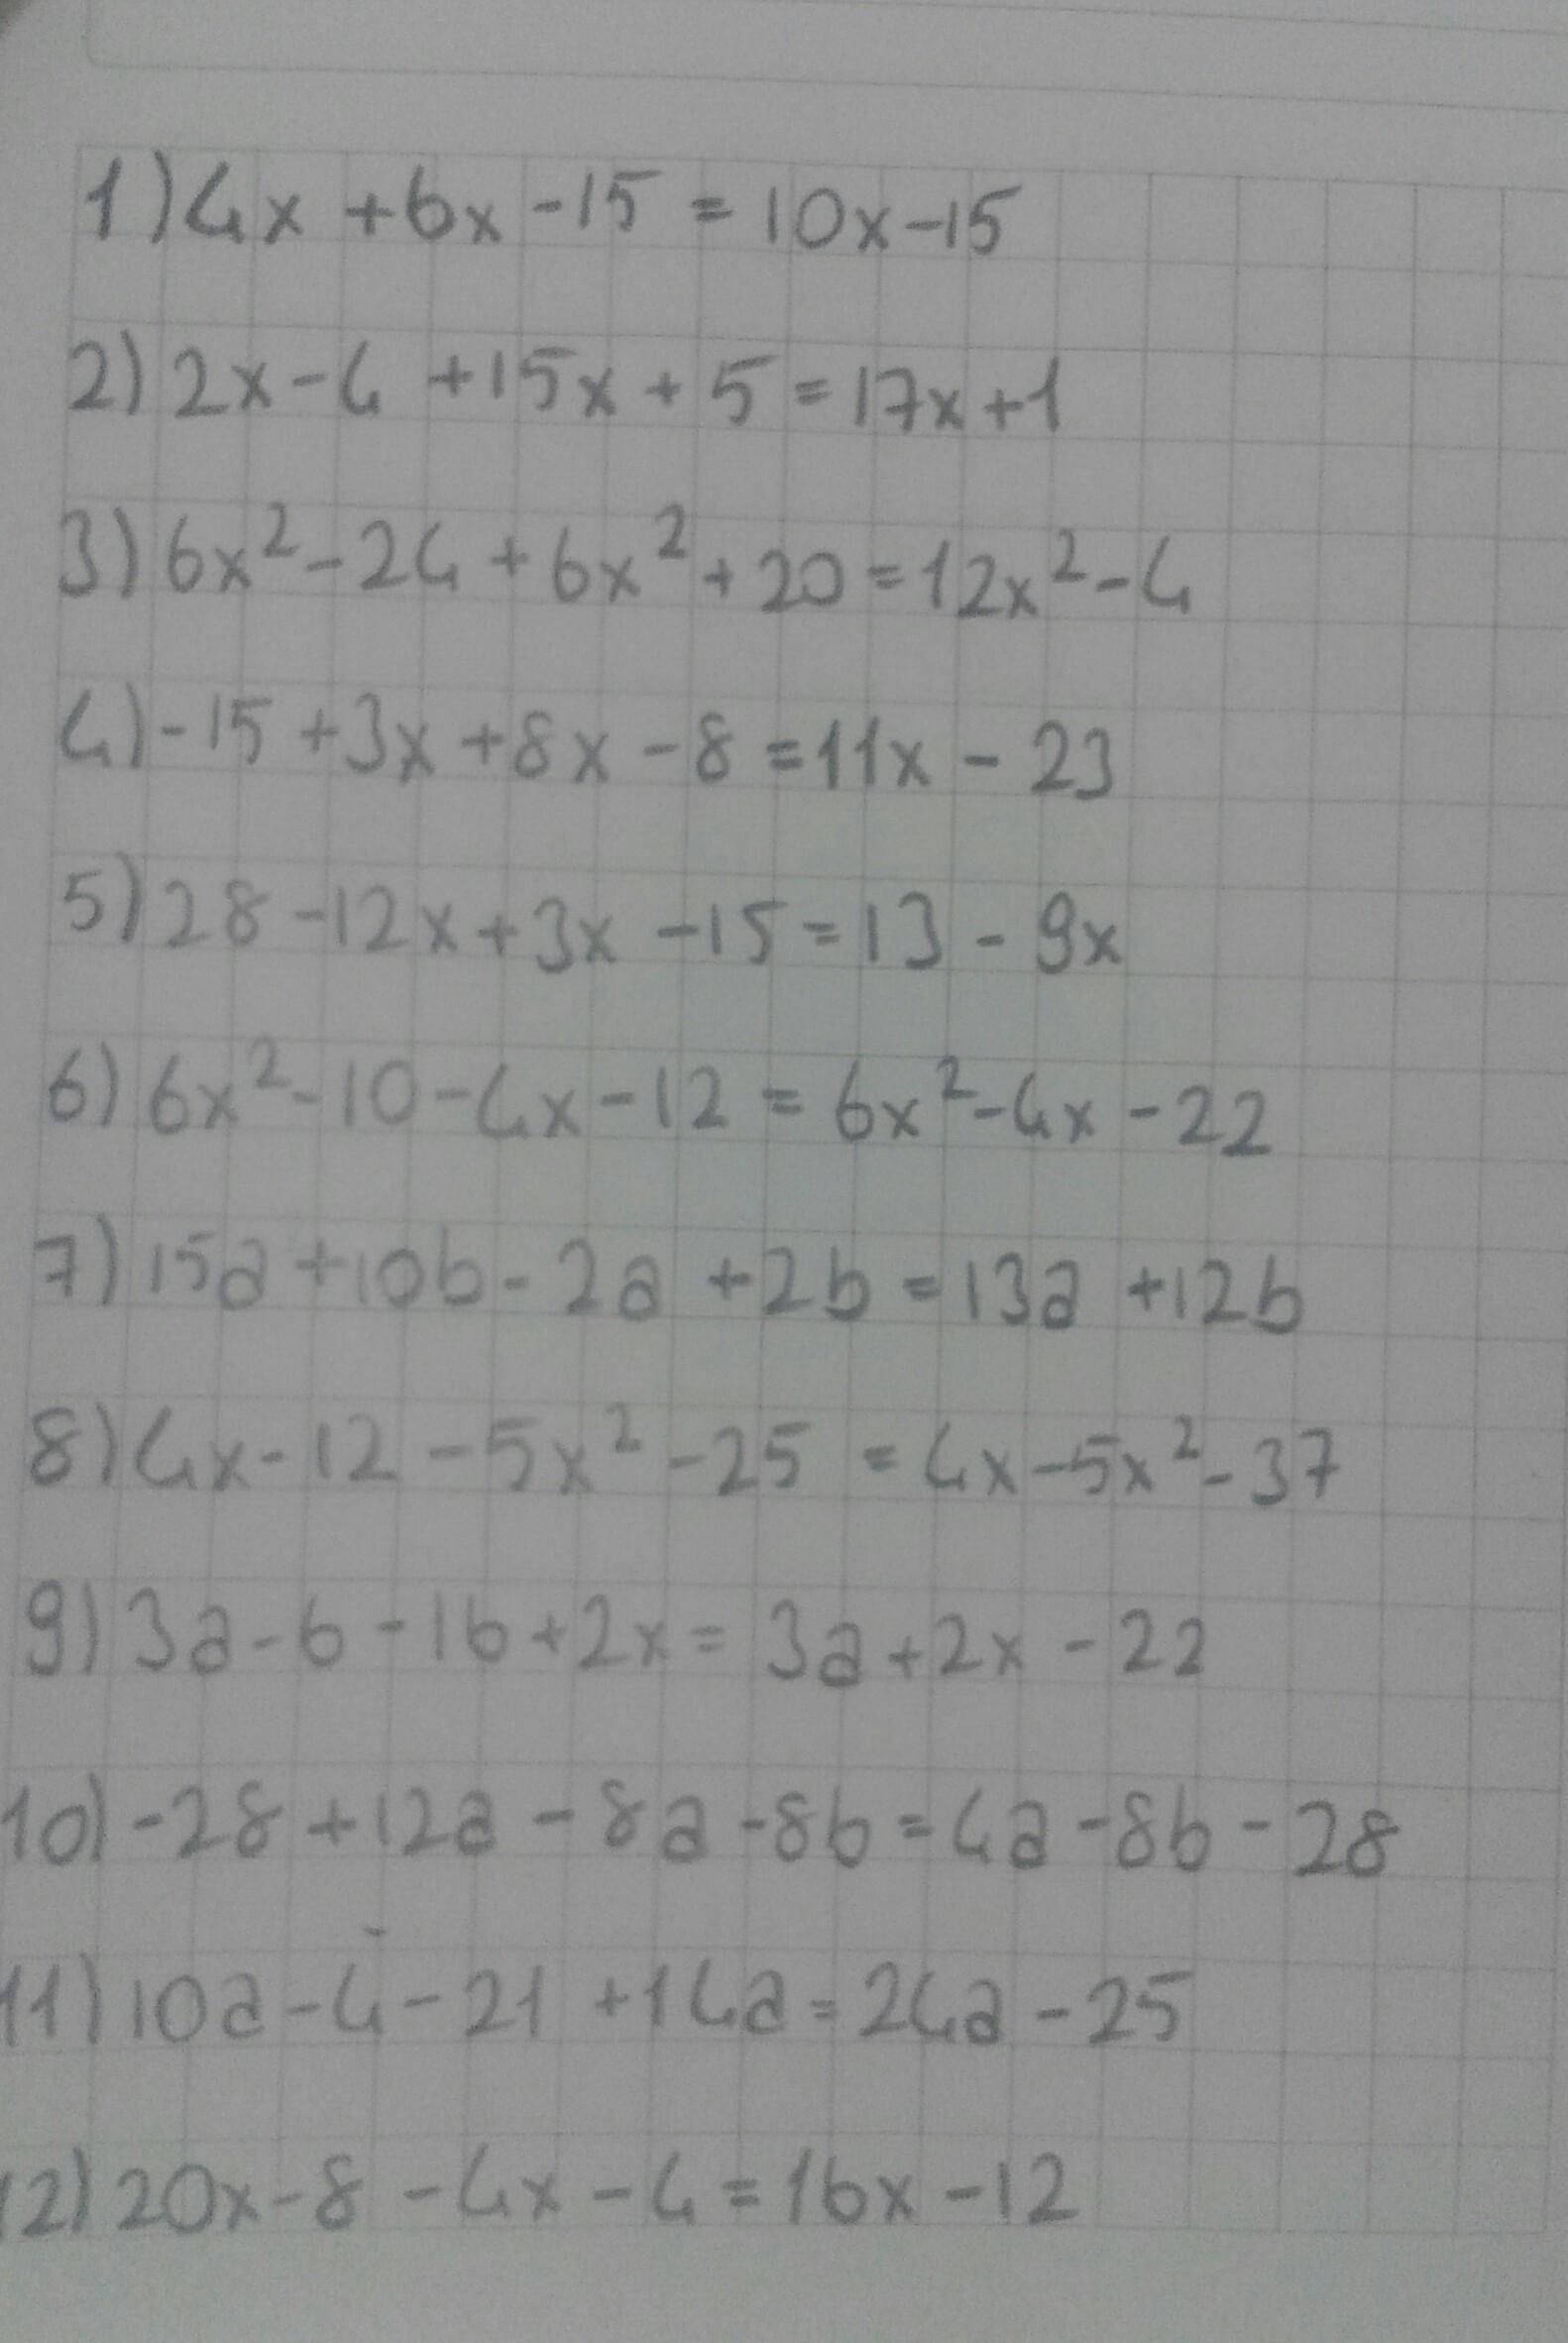 1) 4x + 6x - 15 = 10x - 15
2) 2x - 4 + 15x + 5 = 17x + 1
3) 6x² - 24 + 6x² + 20 = 12x² - 4
4) - 15 + 3x + 8x - 8 = 11x - 23
5) 28 - 12x + 3x - 15 = 13 - 9x
6) 6x² - 10 - 4x - 12 = 6x² - 4x - 22
7) 15a + 10b - 2a + 2b = 13a + 12b
8) 4x - 12 - 5x² - 25 = 4x - 5x² - 37
9) 3a - 6 - 16 + 2x = 3a + 2x - 22
10) - 28 + 12a - 8a - 8b = 4a - 8b - 28
11) 10a - 4 - 21 + 14a = 24a - 25
12) 20x - 8 - 4x - 4 = 16x - 12